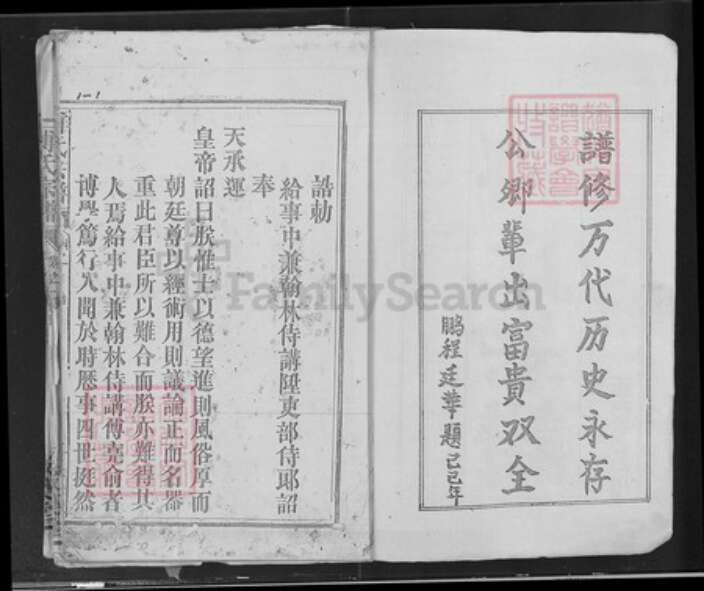 譜修万代历史永存
公卿輩出富貴双全
鵬程廷華題己巳年
誥勅
給事中兼翰林侍講陞吏部侍郎詔
奉
天承運
皇帝詔曰朕惟士以德望進則風俗厚而
朝廷尊以經術用則議論正而名器
重此君臣所以難合而朕亦難得其
人焉給事中兼翰林侍講傅堯俞者
博學篤行久聞於時歷事四世挺然
1-1
FamilySearch